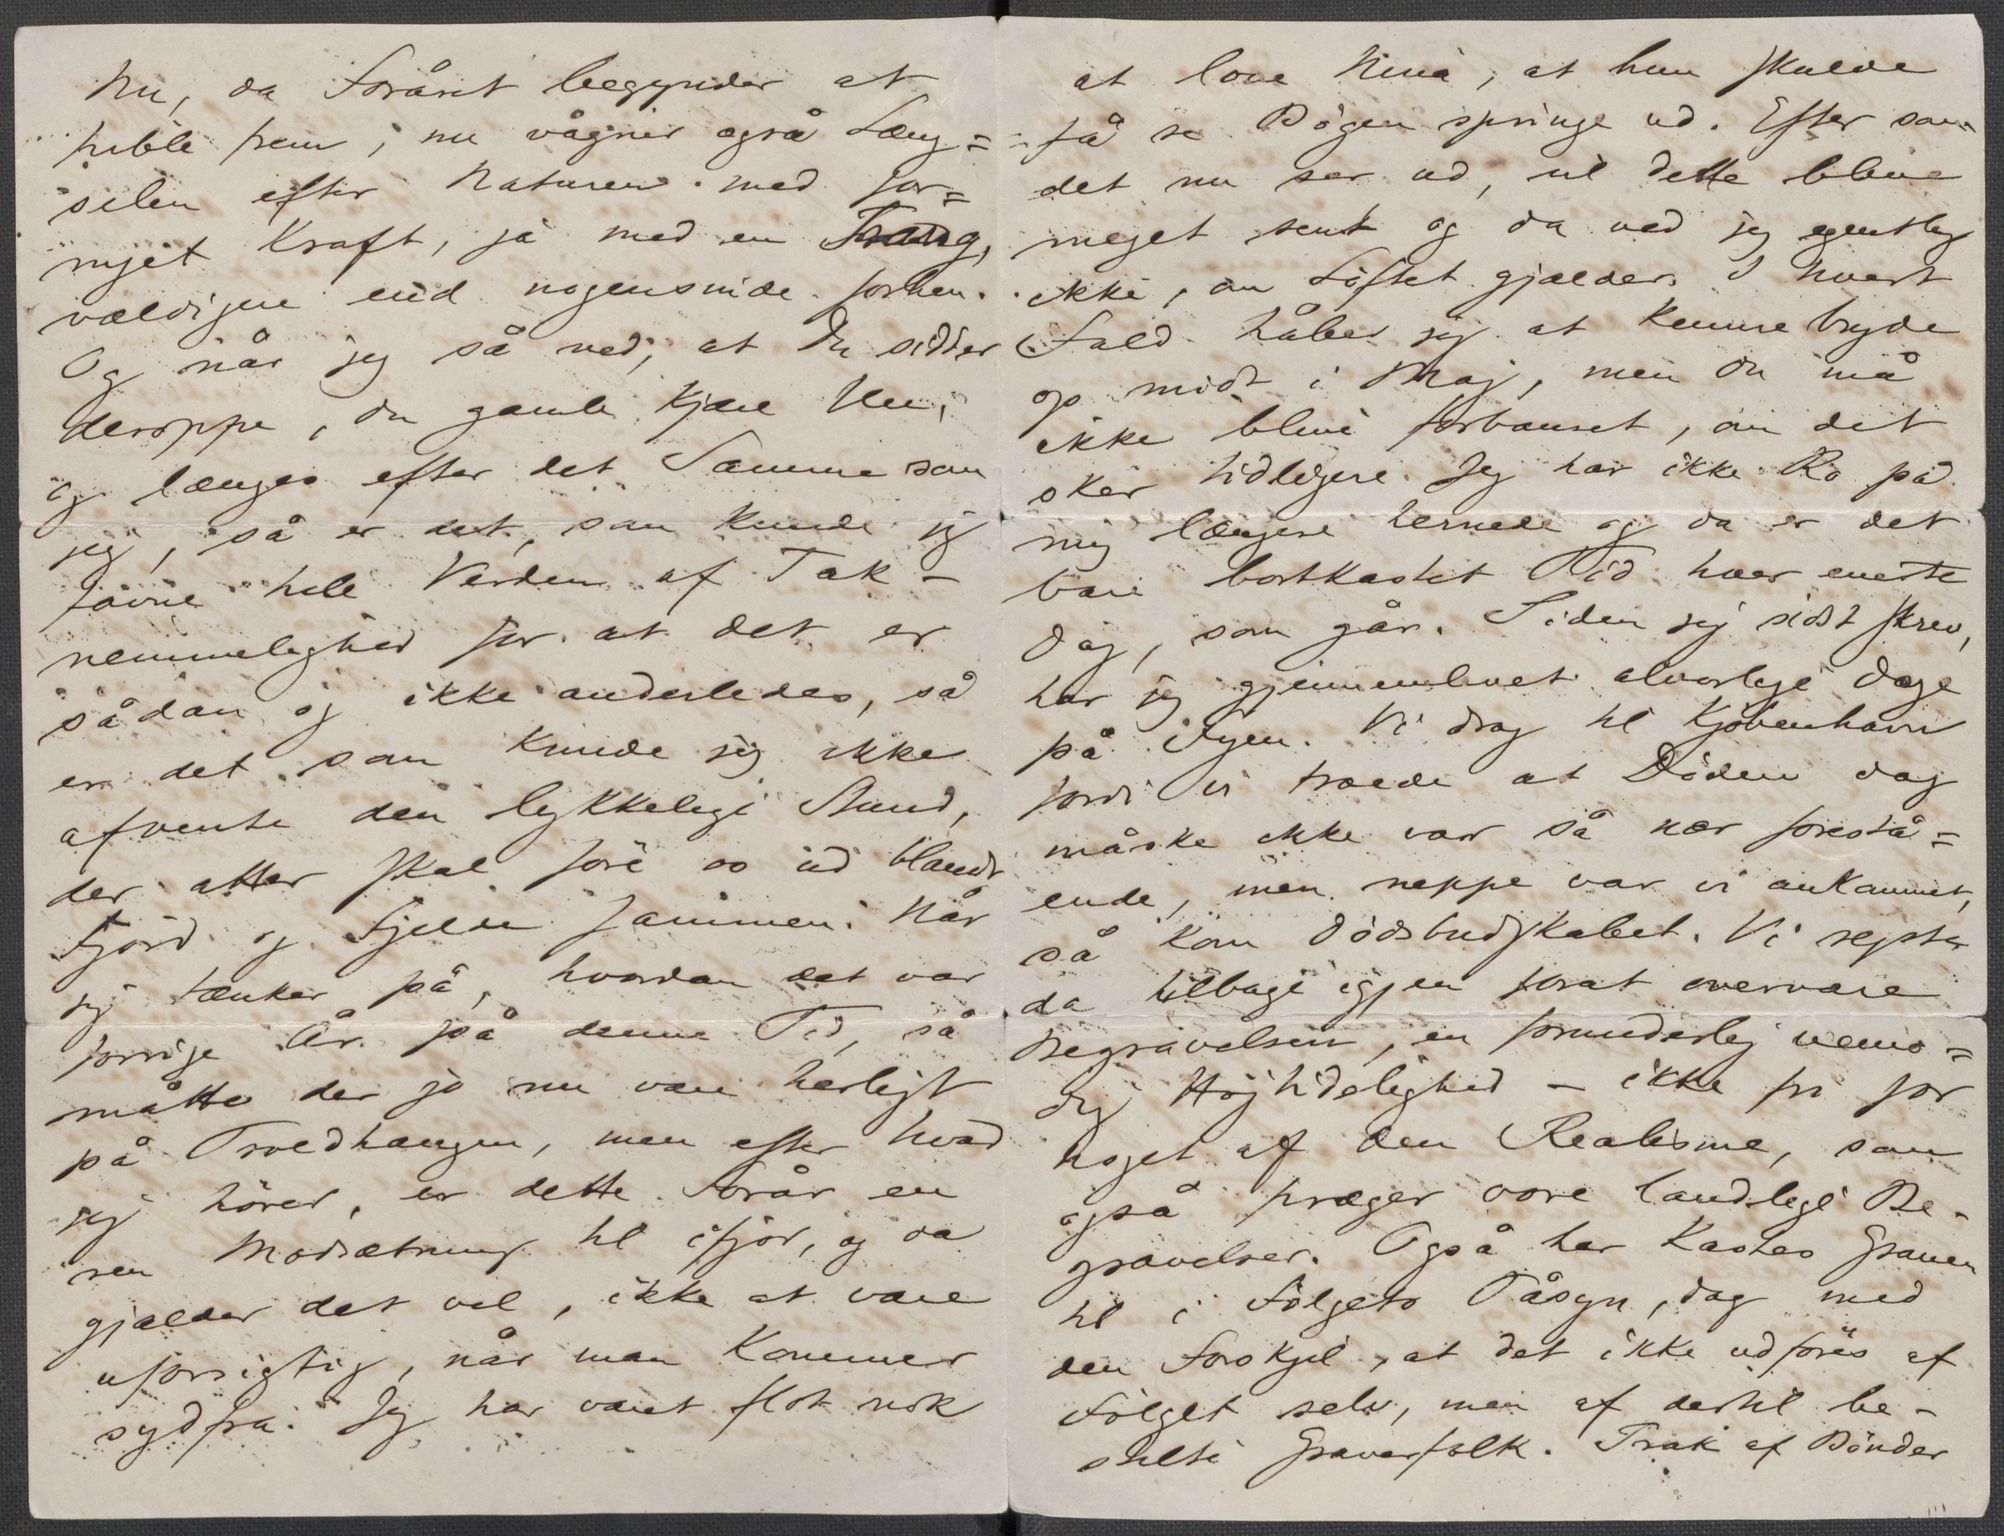 Nu, da Foråret begynder at
pible frem, nu vågner også Læng=
selen efter Naturen med for=
nyet Kraft, ja med en Trang,
vældigere end nogensinde forhen.
Og når jeg så ved, at Du sidder
deroppe, du gamle kjære Ven,
og længes efter det Samme som
jeg, så er det, som kunde jeg
favne hele Verden af Tak-
nemmelighed for at det er
sådan og ikke anderledes, så
er det som kunde jeg ikke
afvente den lykkelige Stund,
der atter skal føre os ud blandt
Fjord og Fjelde sammen. Når
jeg tænker på, hvordan det var
forrige År på denne Tid, så
måtte der jo nu være herligt
på Troldhaugen, men efter hvad
jeg hører, er dette Forår en
ren Modsætning til ifjor, og da
gjælder det vel, ikke at være
uforsigtig, når man kommer
sydfra. Jeg har været flot nok
at love Nina, at hun skulde
få se Bøgen springe ud. Efter som
det nu ser ud, vil dette blive
meget sent og da ved jeg egentlig
ikke, om Løftet gjælder. I hvert
Fald håber jeg at kunne bryde
op midt i Maj, men du må
ikke blive forbauset, om det
sker tidligere. Jeg har ikke Ro på
mig længere hernede og da er det
bare bortkastet Tid hver eneste
Dag, som går. Siden jeg sidst skrev,
har jeg gjennemlevet alvorlige Dage
på Fyen. Vi drog til Kjøbenhavn
fordi vi troede at Døden dog
måske ikke var så nær forestå=
ende, men neppe var vi ankommet,
så kom Dødsbudskabet. Vi rejste
da tilbage igjen forat overvære
Begravelsen, en forunderlig vemo=
dig Højtidelighed – ikke fri for
noget af den Realisme, som
også præger vore landlige Be-
gravelser. Også her kastes Graven
til i Følgets Påsyn, dog med
den Forskjel, at det ikke udføres af
Følget selv, men af dertil be-
stilte Graverfolk. Trak af Bønder